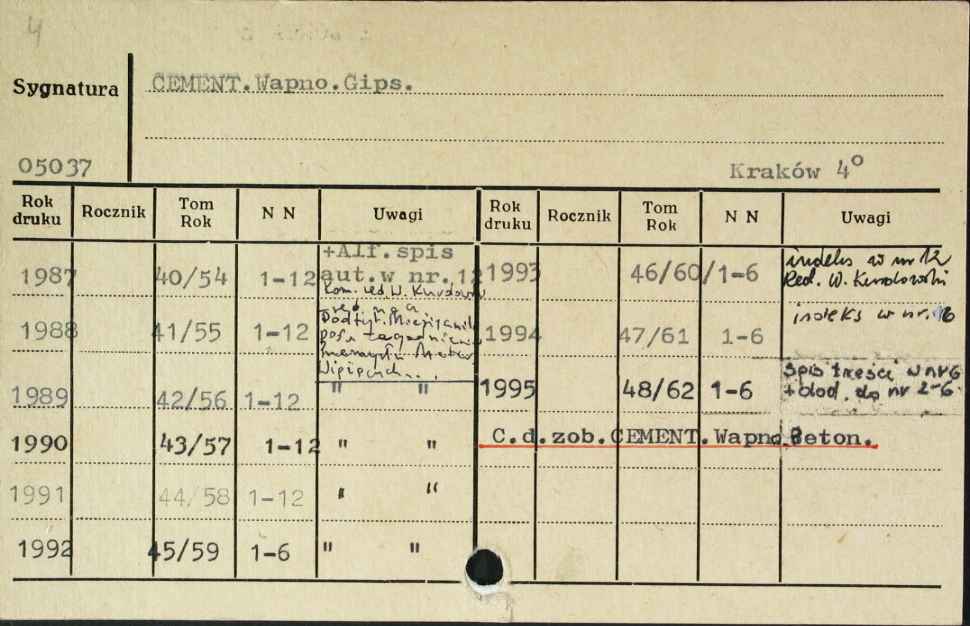 4
Sygnatura CEMENT.Wapno.Gips.
05037 Kraków 4°
Rok druku Rocznik Tom Rok N N Uwagi Rok druku Rocznik Tom Rok N N Uwagi
1987 40/54 1-12 +Alf.spis aut.w nr.12
1993 46/60/1-6 indeks w nr 12
Red. W. Kurdowski
1988 41/55 1-12
1994 47/61 1-6 indeks w nr. 6
1989 42/56 1-12 " "
1995 48/62 1-6 Spis treści w nr 6
+ dod. do nr 2-6
1990 43/57 1-12 " "
C.d.zob.CEMENT.Wapno.Beton.
1991 44/58 1-12 " "
1992 45/59 1-6 " "